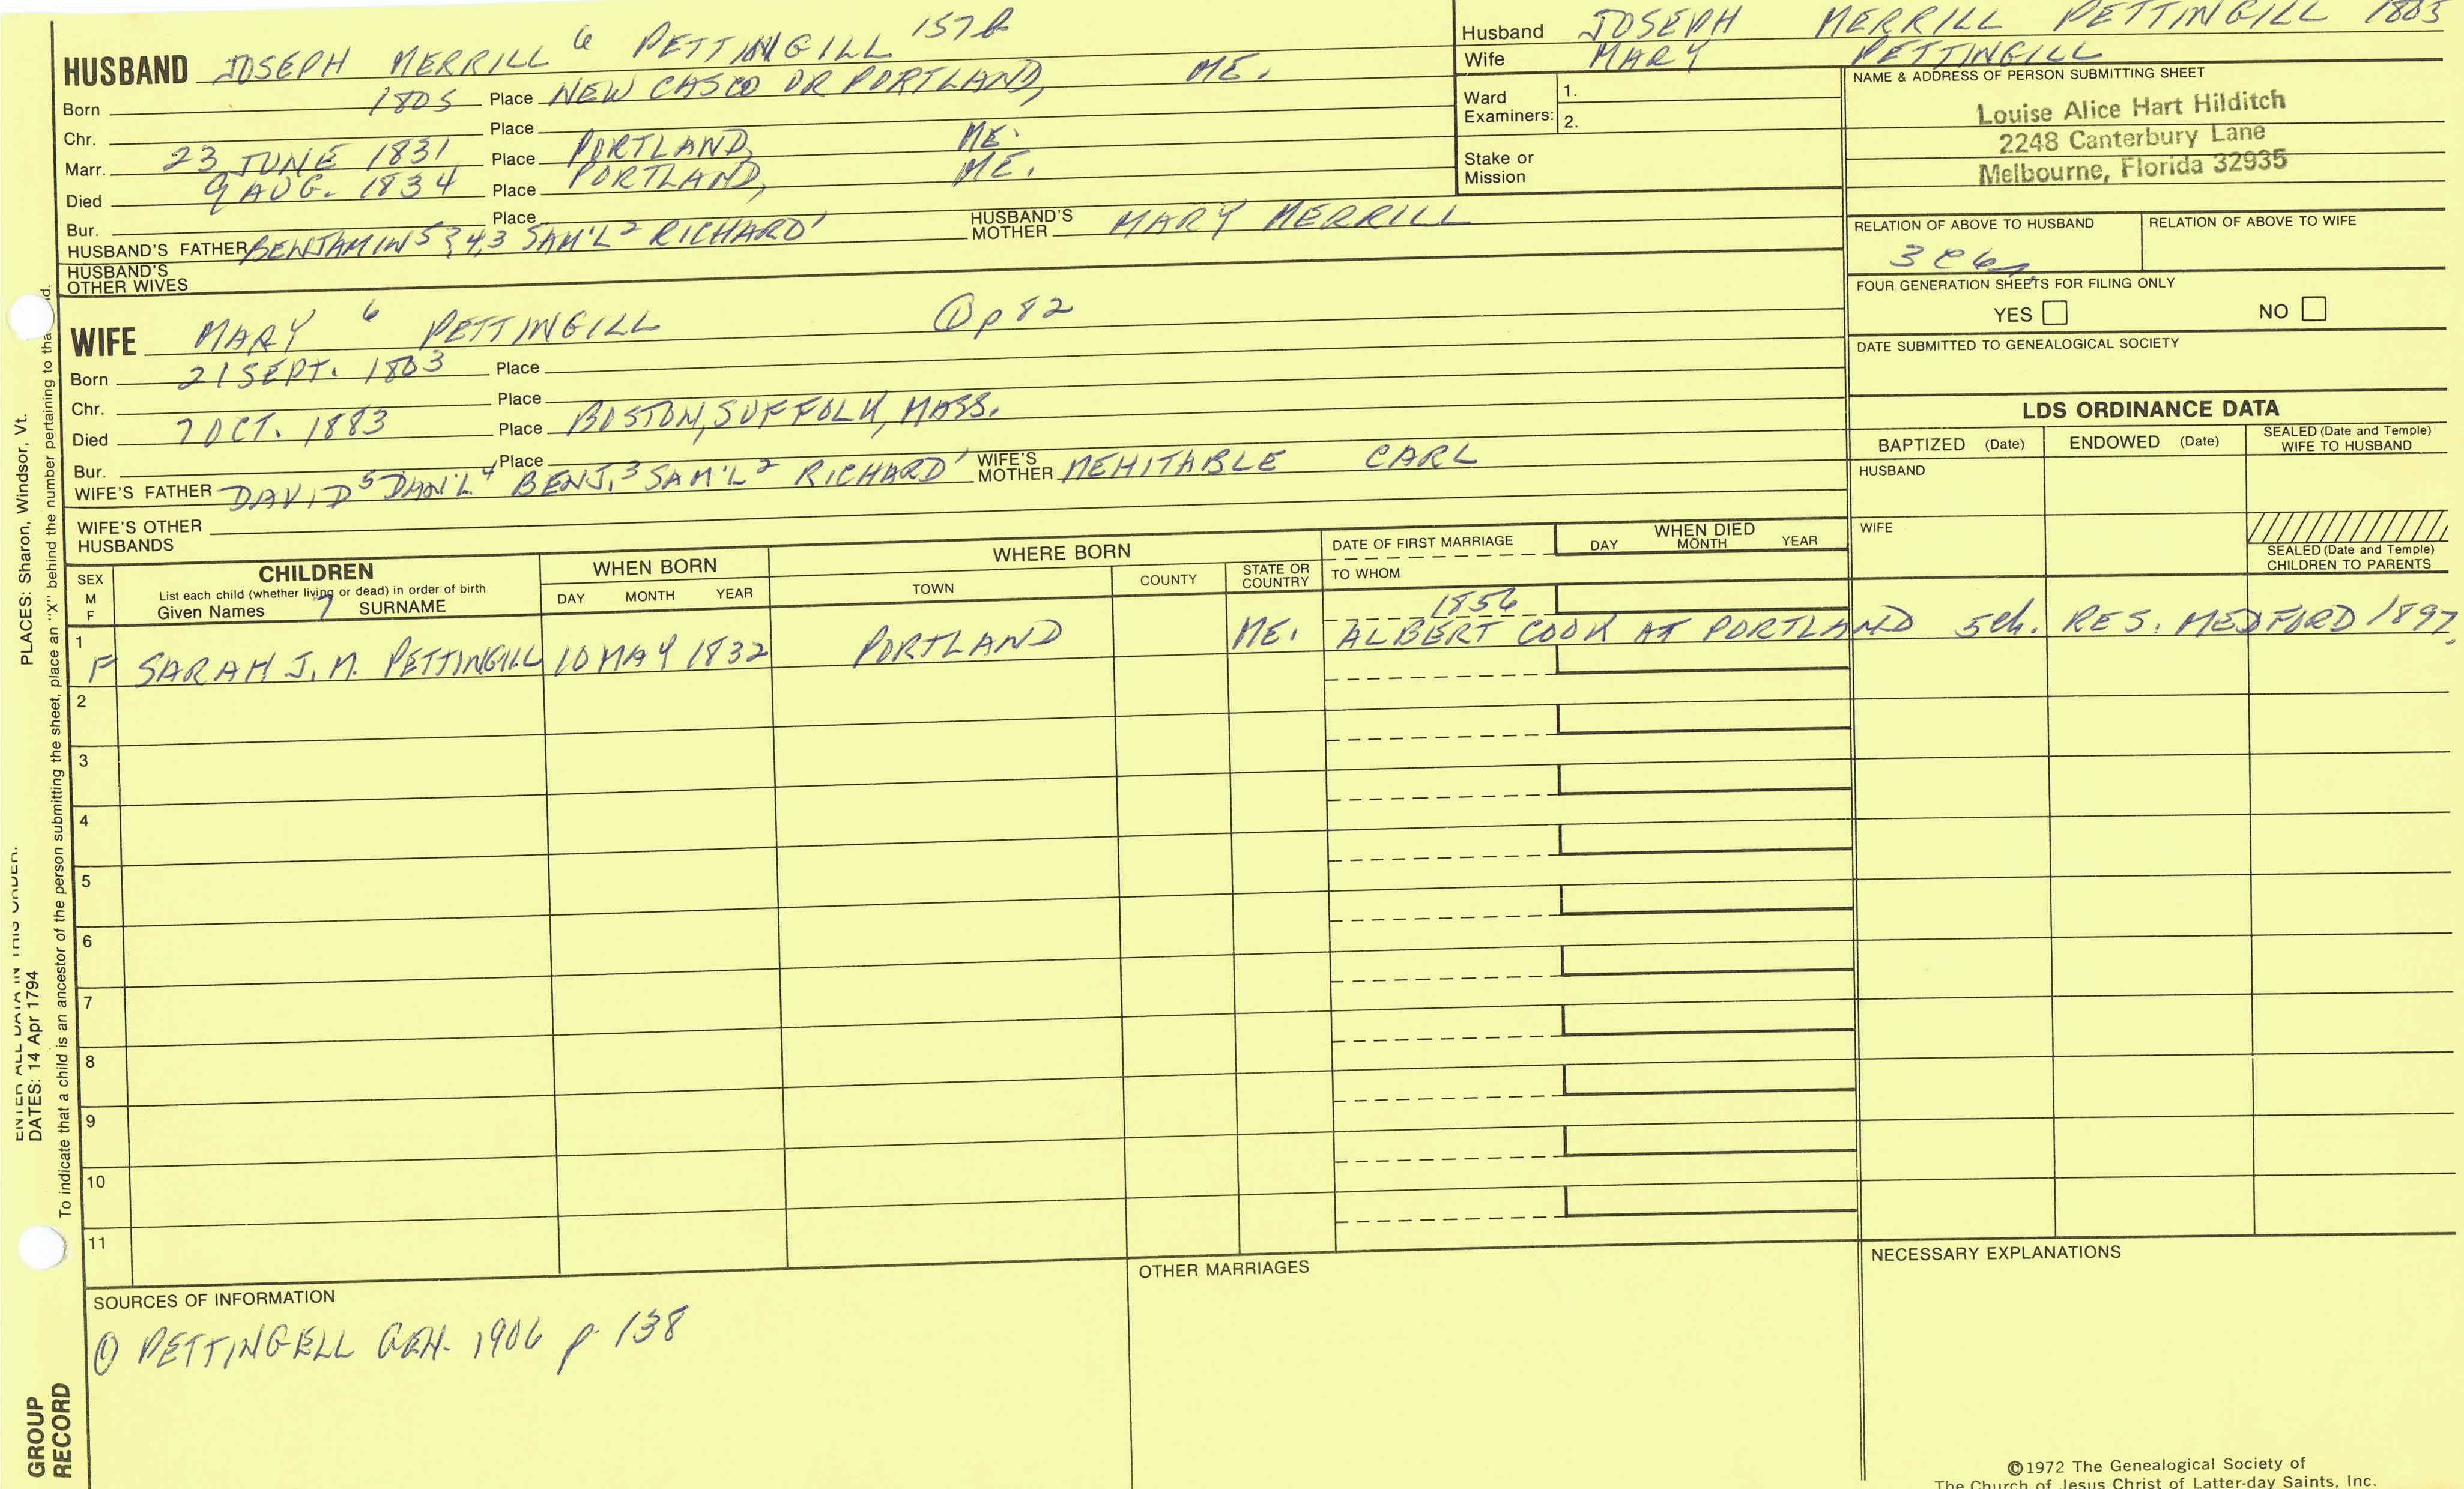 HUSBAND JOSEPH MERRILL 6 PETTINGILL 157
Born 1805 Place NEW CASCO OR PORTLAND, ME.
Chr. Place
Marr. 23 JUNE 1831 Place PORTLAND, ME.
Died 9 AUG. 1834 Place PORTLAND, ME.
Bur. Place
HUSBAND'S FATHER BENJAMIN 5 ? 4,3 SAM'L 2 RICHARD 1 HUSBAND'S MOTHER MARY MERRILL
HUSBAND'S OTHER WIVES
Husband JOSEPH MERRILL PETTINGILL
Wife MARY PETTINGILL
Ward Examiners: 1.
2.
Stake or Mission
NAME & ADDRESS OF PERSON SUBMITTING SHEET
Louise Alice Hart Hilditch
2248 Canterbury Lane
Melbourne, Florida 32935
RELATION OF ABOVE TO HUSBAND RELATION OF ABOVE TO WIFE
FOUR GENERATION SHEETS FOR FILING ONLY
YES NO
DATE SUBMITTED TO GENEALOGICAL SOCIETY
WIFE MARY 6 PETTINGILL ① p 82
Born 21 SEPT. 1803 Place
Chr. Place
Died 7 OCT. 1883 Place BOSTON, SUFFOLK, MASS.
Bur. Place
WIFE'S FATHER DAVID 5 DAN'L 4 BENJ. 3 SAM'L 2 RICHARD 1 WIFE'S MOTHER MEHITABLE CARL
WIFE'S OTHER HUSBANDS
LDS ORDINANCE DATA
BAPTIZED (Date) ENDOWED (Date) SEALED (Date and Temple) WIFE TO HUSBAND
HUSBAND
WIFE
SEALED (Date and Temple) CHILDREN TO PARENTS
SEX M F
CHILDREN
List each child (whether living or dead) in order of birth
Given Names 7 SURNAME
WHEN BORN
DAY MONTH YEAR
WHERE BORN
TOWN COUNTY STATE OR COUNTRY
DATE OF FIRST MARRIAGE
TO WHOM
WHEN DIED
DAY MONTH YEAR
1856
1 F SARAH J. M. PETTINGILL 10 MAY 1832 PORTLAND ME. ALBERT COOK AT PORTLAND 5 ch. RES. MEDFORD 1897.
2
3
4
5
6
7
8
9
10
11
SOURCES OF INFORMATION
① PETTINGELL GEN. 1906 p 138
OTHER MARRIAGES
NECESSARY EXPLANATIONS
©1972 The Genealogical Society of
The Church of Jesus Christ of Latter-day Saints, Inc.
PLACES: Sharon, Windsor, Vt.
ENTER ALL DATA IN THIS ORDER:
DATES: 14 Apr 1794
To indicate that a child is an ancestor of the person submitting the sheet, place an "X" behind the number pertaining to
GROUP
RECORD